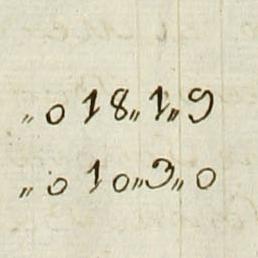 „ 0 18„ 1„ 9
„ 0 10„ 3„ 0